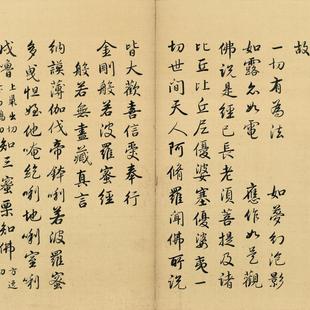 故
一切有為法　如夢幻泡影
如露亦如電　應作如是觀
佛說是經已長老須菩提及諸
比丘比丘尼優婆塞優婆夷一
切世間天人阿脩羅聞佛所說
皆大歡喜信受奉行
金剛般若波羅蜜經
般若無盡藏真言
納謨薄伽伐帝鉢唎若波羅蜜
多曳怛姪他唵紇唎地唎室唎
戍嚕知三蜜栗知佛